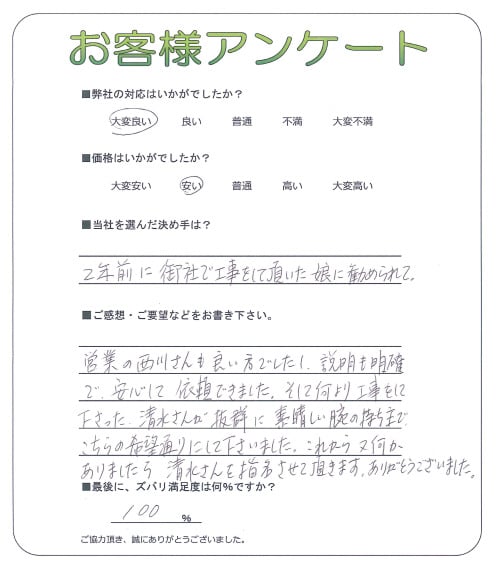 お客様アンケート
■弊社の対応はいかがでしたか？
大変良い 良い 普通 不満 大変不満
■価格はいかがでしたか？
大変安い 安い 普通 高い 大変高い
■当社を選んだ決め手は？
2年前に御社で工事をして頂いた娘に勧められて。
■ご感想・ご要望などをお書き下さい。
営業の西川さんも良い方でしたし、説明も明確
で、安心して依頼できました。そして何より工事をして
下さった清水さんが抜群に素晴しい腕の持ち主で
こちらの希望通りにして下さいました。これから又何か
ありましたら清水さんを指名させて頂きます。ありがとうございました。
■最後に、ズバリ満足度は何％ですか？
100 %
ご協力頂き、誠にありがとうございました。